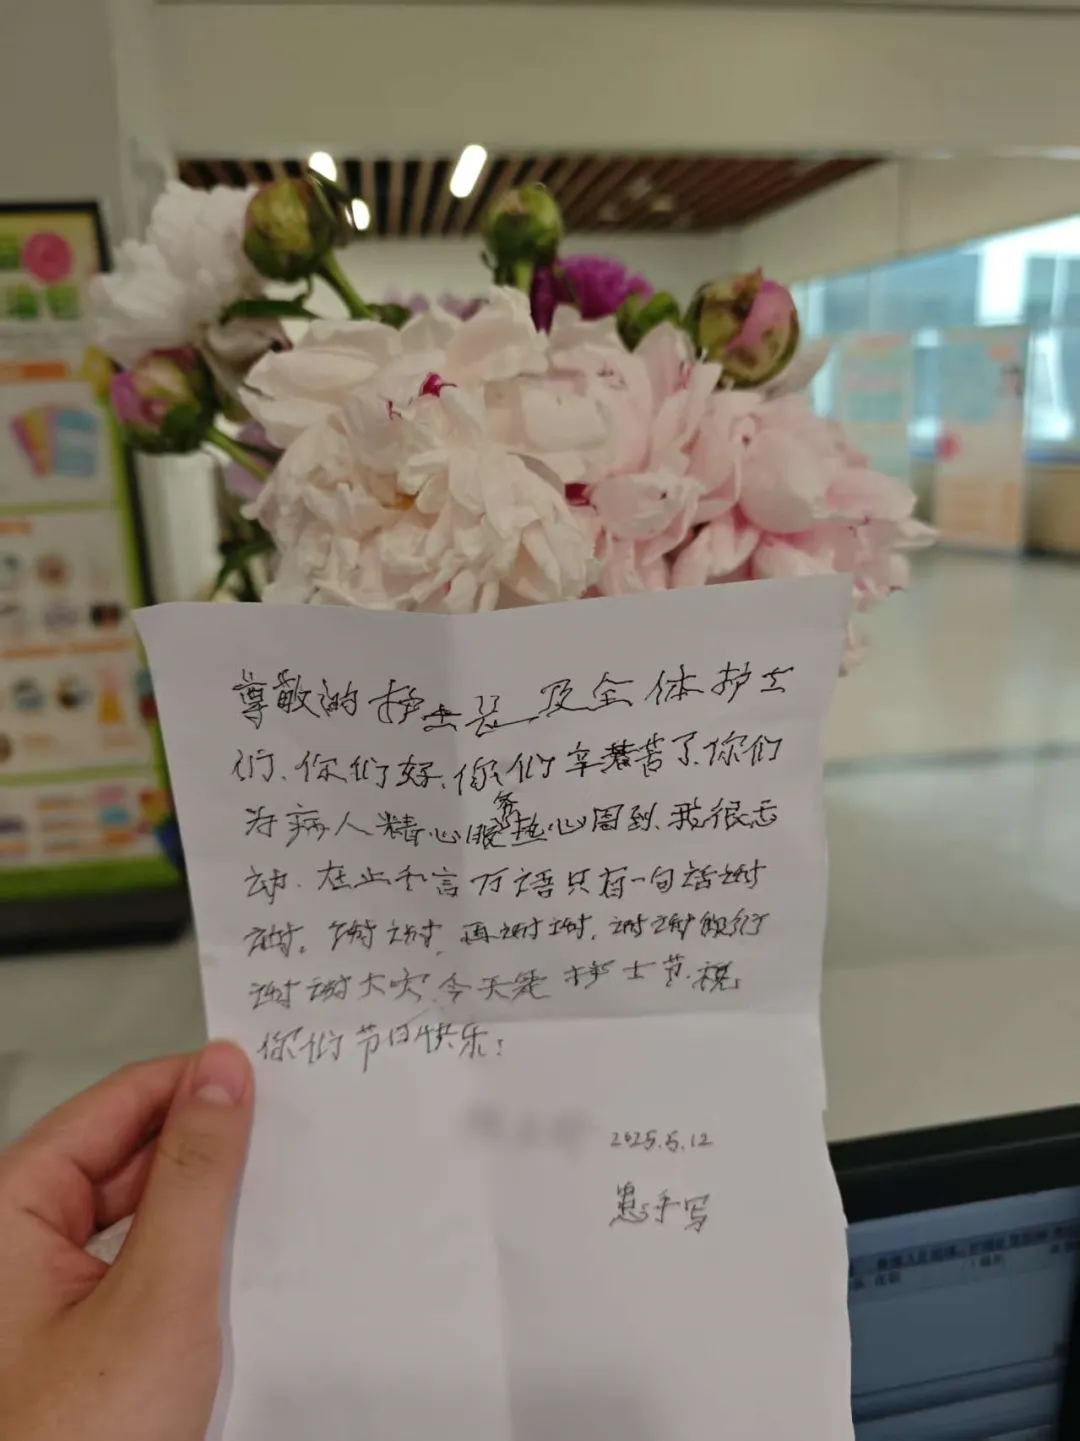 尊敬的护士长及全体护士
们、你们好、你们辛苦了、你们
为病人精心服务热心周到、我很感
动、在此千言万语只有一句话谢
谢。谢谢、再谢谢、谢谢你们
谢谢大家、今天是护士节、祝
你们节日快乐!
2025.5.12
患手写